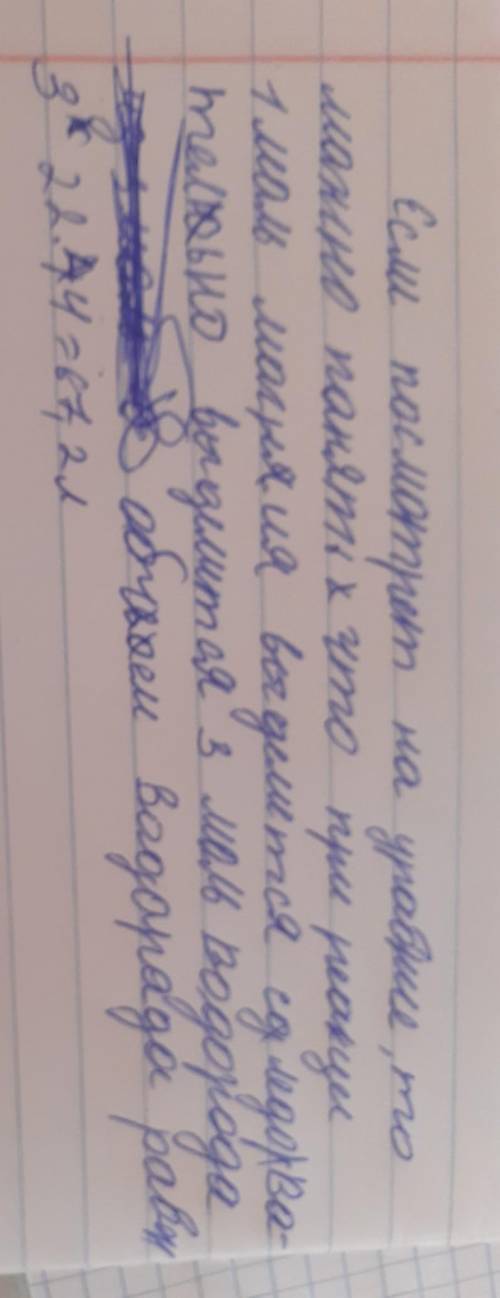 Если посмотрет на уравние, то
можно панять что при реакци
1 моль магния выделится следова-
тельно выделится 3 моль водорода
обчем вадорада равн
3* 22.4 = 67,2 л